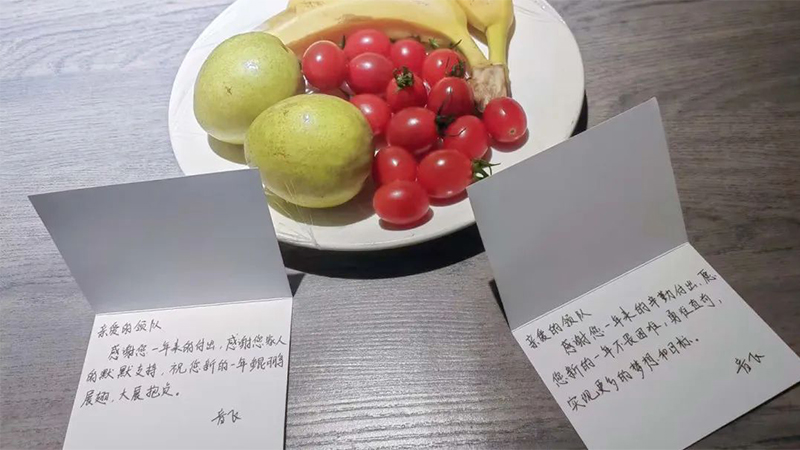 亲爱的领队
感谢您一年来的付出，感谢您家人
的默默支持，祝您新的一年鲲鹏
展翅，大展抱负。
亲爱的领队
感谢您一年来的辛勤付出，愿
您新的一年不畏困难，勇往直前，
实现更多的梦想和目标。